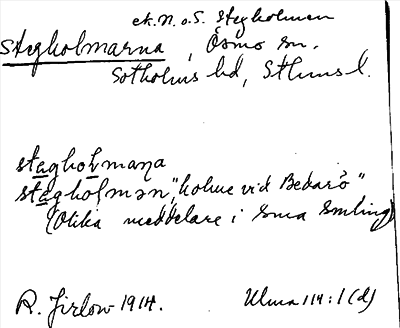 ek. N. o. S. Stegholmen
Stegholmarna, Ösmo sn.
Sotholms hd, Sthms l.
stagholmaņa
stagholmən, "holme vid Bedarö"
(Olika meddelare i sma smling)
R. Jirlow 1914.
Ulma 114:1 (d)